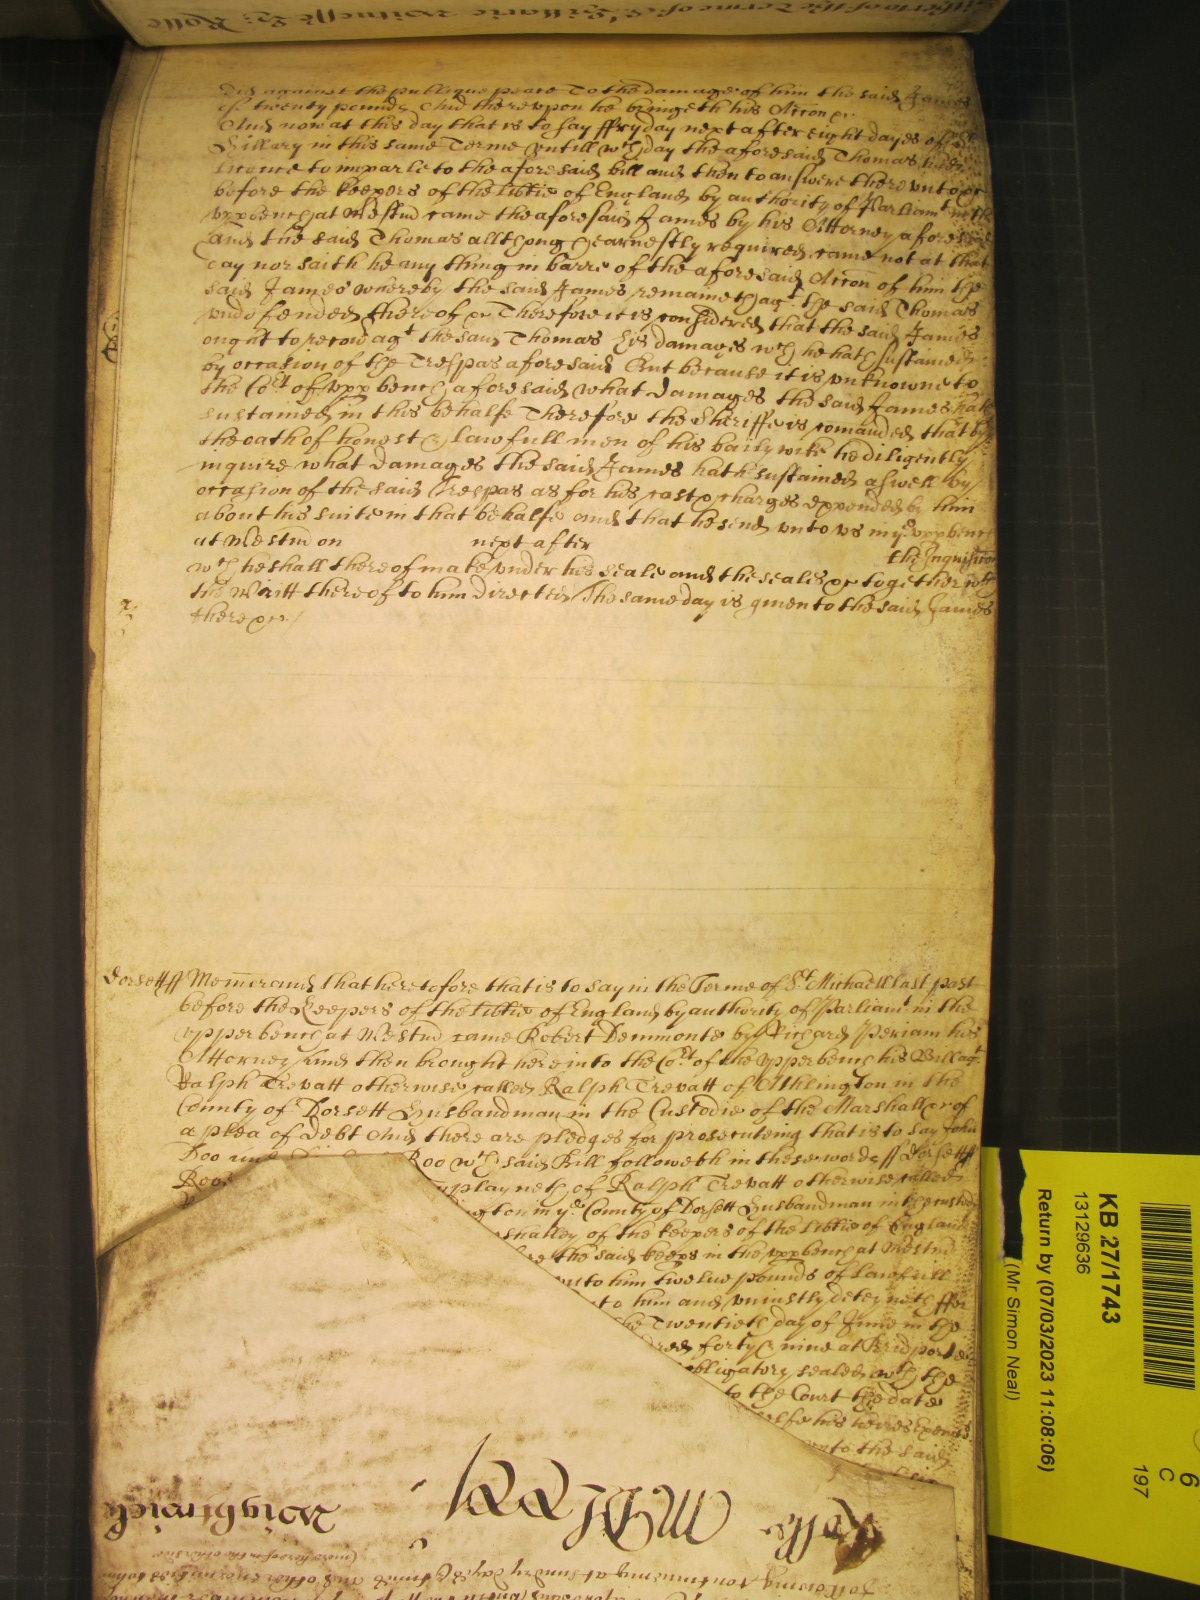 did against the publique peace To the damage of him the said James
of twenty pounds And thereupon he bringeth his Accon &c
And now at this day that is to say ffryday next after eight dayes of St
Hillary in this same Terme untill wch day the aforesaid Thomas had
licence to imparle to the aforesaid bill and then to answere thereunto &c
before the keepers of the libtie of England by authority of Parliamt in the
uppbench at Westmr came the aforesaid James by his Attorney aforesaid
And the said Thomas allthough earnestly required came not at that
day nor saith he any thing in barre of the aforesaid Accon of him the
said James whereby the said James remaineth agt the said Thomas
undefended thereof &c Therefore it is considered that the said James
ought to recovr agt the said Thomas his damages wch he hath sustained
by occasion of the Trespas aforesaid But because it is unknowne to
the Cort of uppbench aforesaid what damages the said James hath
sustained in this behalfe Therefore the Sheriffe is comanded that by
the oath of honest & lawfull men of his bailywike he diligently
inquire what damages the said James hath sustained aswell by
occasion of the said Trespas as for his costs & charges expended by him
about his suite in that behalfe and that he send unto us in ye uppbench
at Westmr on next after the Inquisicon
wch he shall thereof make under his seale and the seales &c together wth
the Writt thereof to him directed The same day is given to the said James
there &c
Dorsett ff Memorand that heretofore that is to say in the Terme of St Michaell last past
before the Keepers of the libtie of England by authority of Parliamt in the
upperbench at Westmr came Robert Demmonte by Richard Periam his
Attorney And then brought here into the Cort of the upperbench his Bill agt
Ralph Trevatt otherwise called Ralph Trevatt of Athlington in the
County of Dorsett Husbandman in the Custodie of the Marshall &c of
a plea of Debt And there are pledges for prosecuteing that is to say John
Doo and Roo wch said Bill followeth in these words ff Dorsett ff
playneth of Ralph Trevatt otherwise called
ington in ye County of Dorsett Husbandman in the custody
shalley of the keepers of the libtie of England
fore the said keeps in the uppbench at Westmr
unto him twelve pounds of lawfull
to him and uniustly deteyneth ffor
the Twentieth day of June in the
dred forty & nine at Bridporte
obligatory sealed wth the
to the Court the date
selfe his heires
unto the said
KB 27/1743
13129636
Return by (07/03/2023 11:08:06)
(Mr Simon Neal)
6
C
197
Rolle
Wightwick
(more hereof on the other side
following continuing at sundry dayes & times and other enormities to him